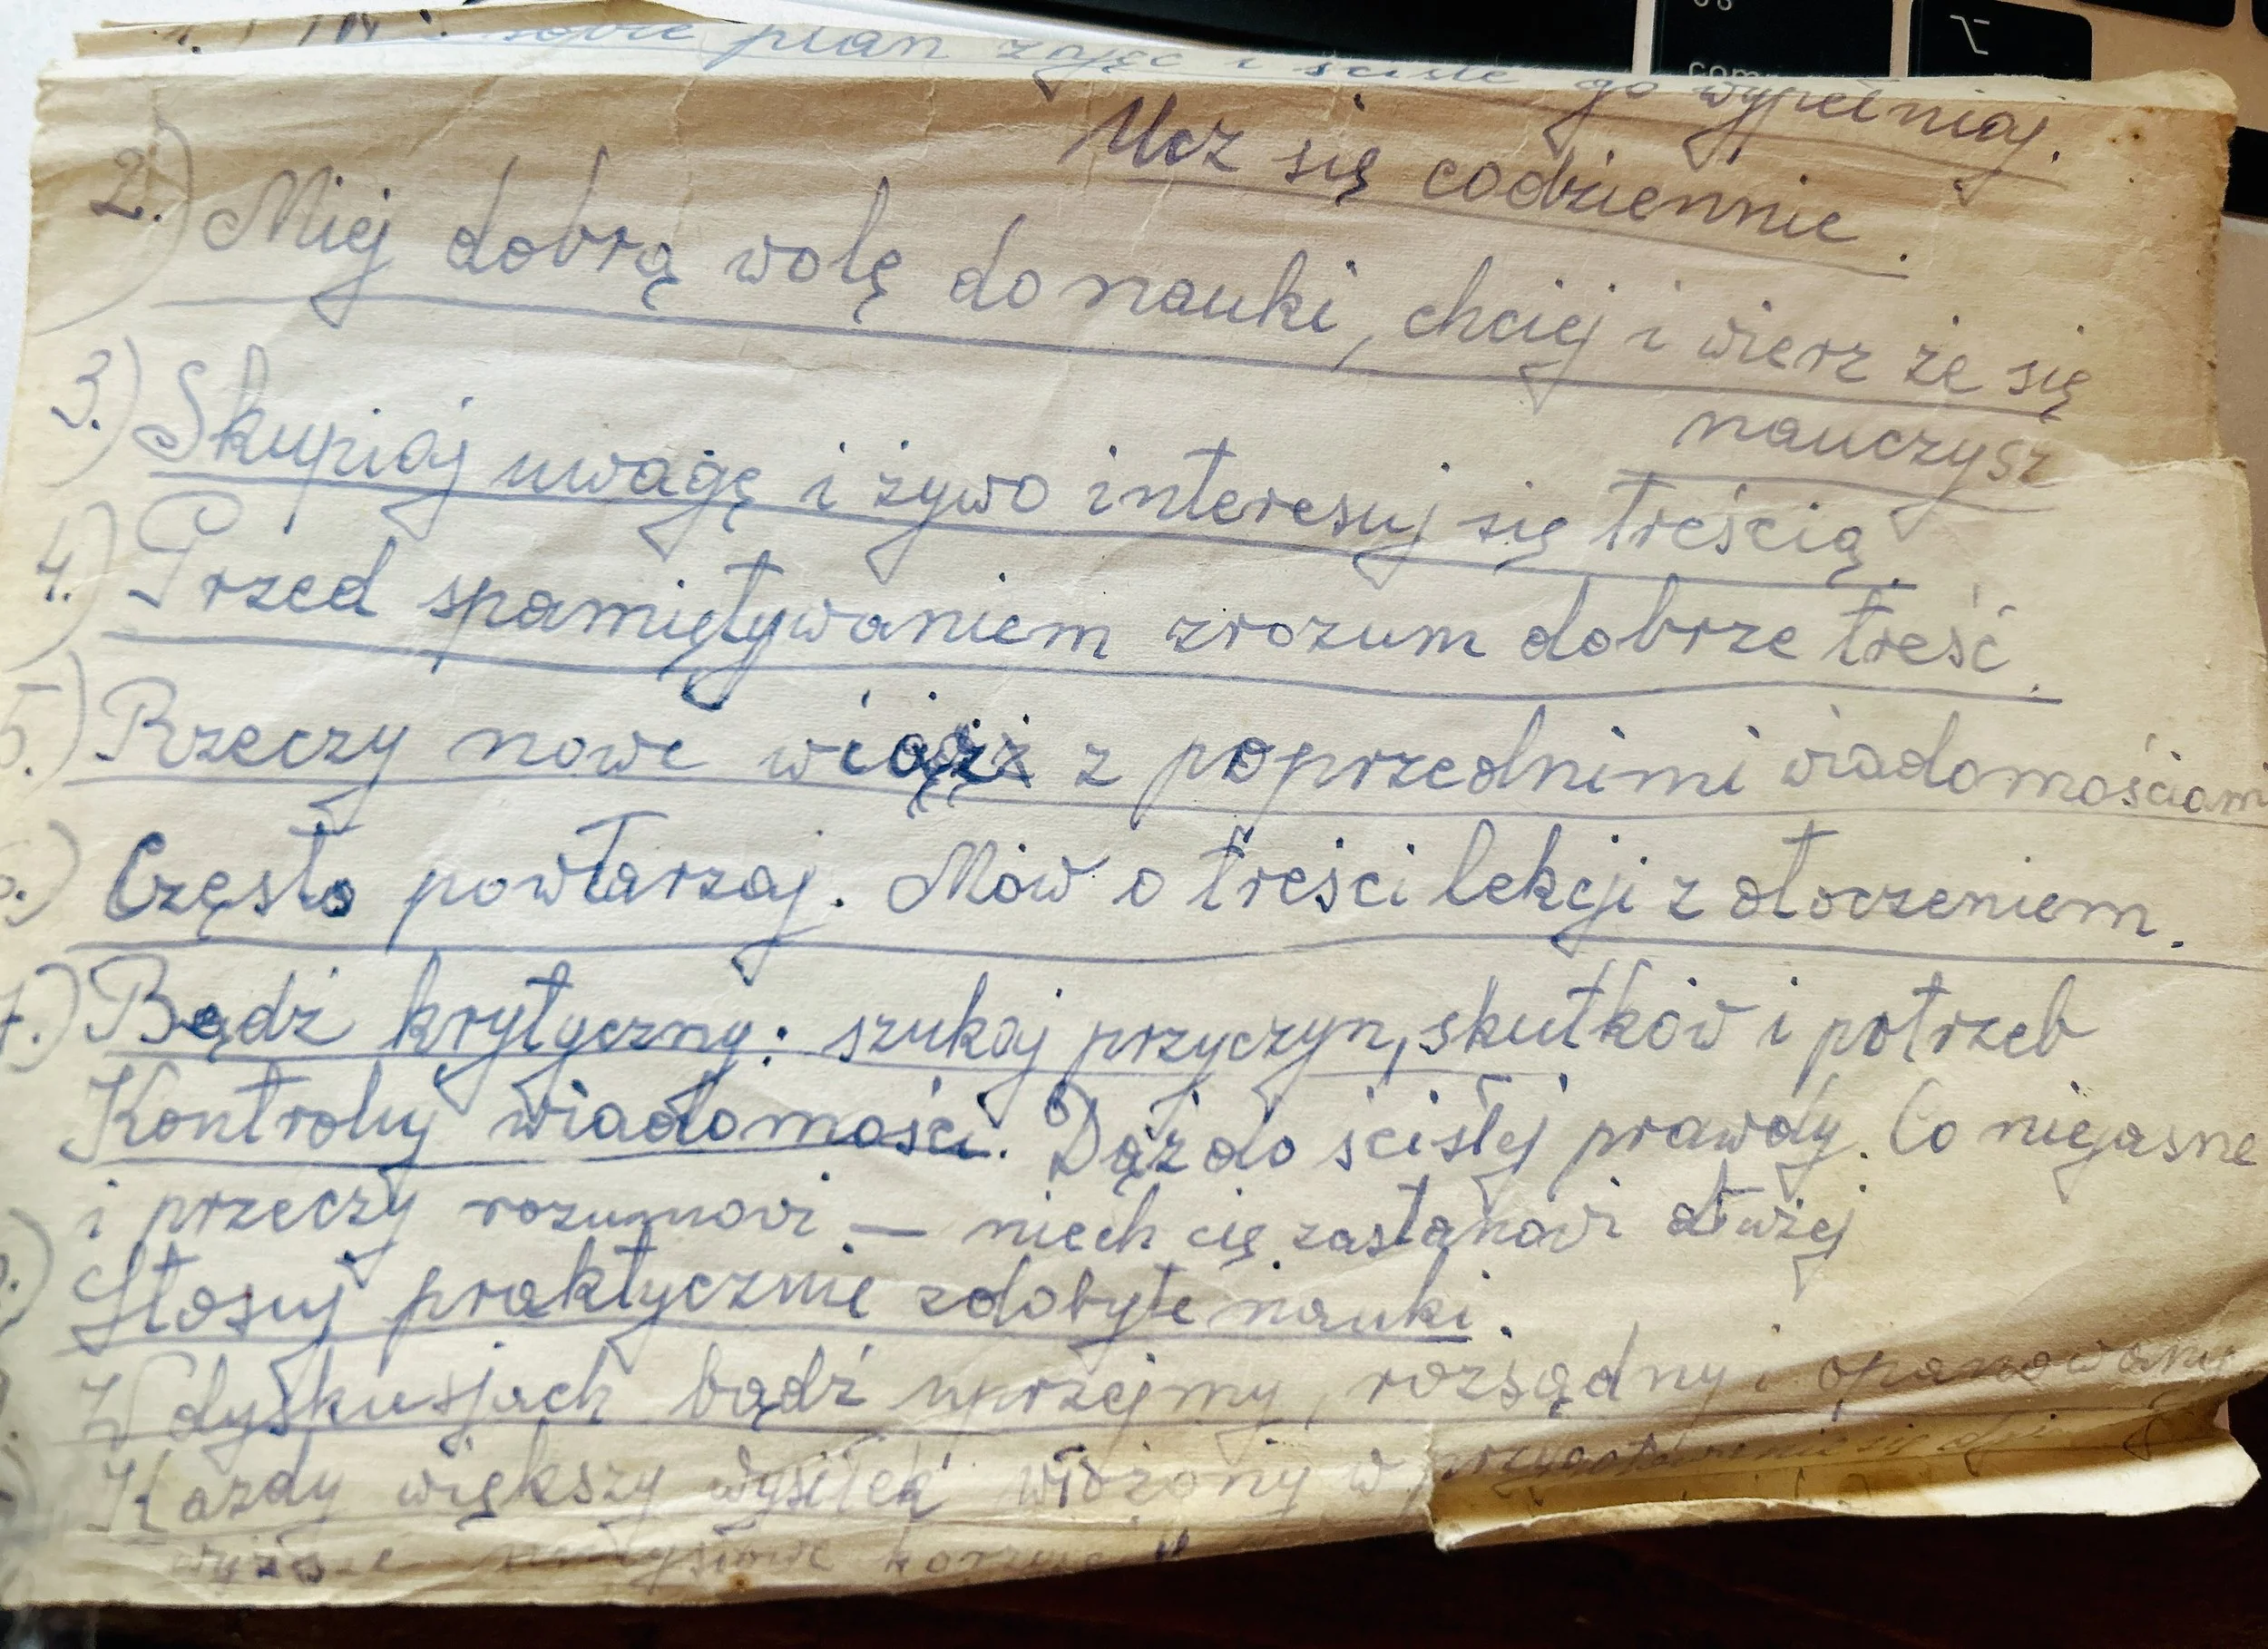 sobie plan zajęć i ściśle go wypełniaj.
Ucz się codziennie.
2.) Miej dobrą wolę do nauki, chciej i wierz że się
nauczysz
3.) Skupiaj uwagę i żywo interesuj się treścią.
4.) Przed spamiętywaniem zrozum dobrze treść.
5.) Rzeczy nowe wiąż z poprzednimi wiadomościami
Często powtarzaj. Mów o treści lekcji z otoczeniem.
7.) Bądź krytyczny: szukaj przyczyn, skutków i potrzeb
Kontroluj wiadomości. Dąż do ścisłej prawdy. Co niejasne
i przeczy rozumowi – niech cię zastanowi dłużej
Stosuj praktycznie zdobyte nauki.
W dyskusjach bądź uprzejmy, rozsądny i opanowany
Każdy większy wysiłek włożony w przygotowanie się
wyższe umysłowe
com